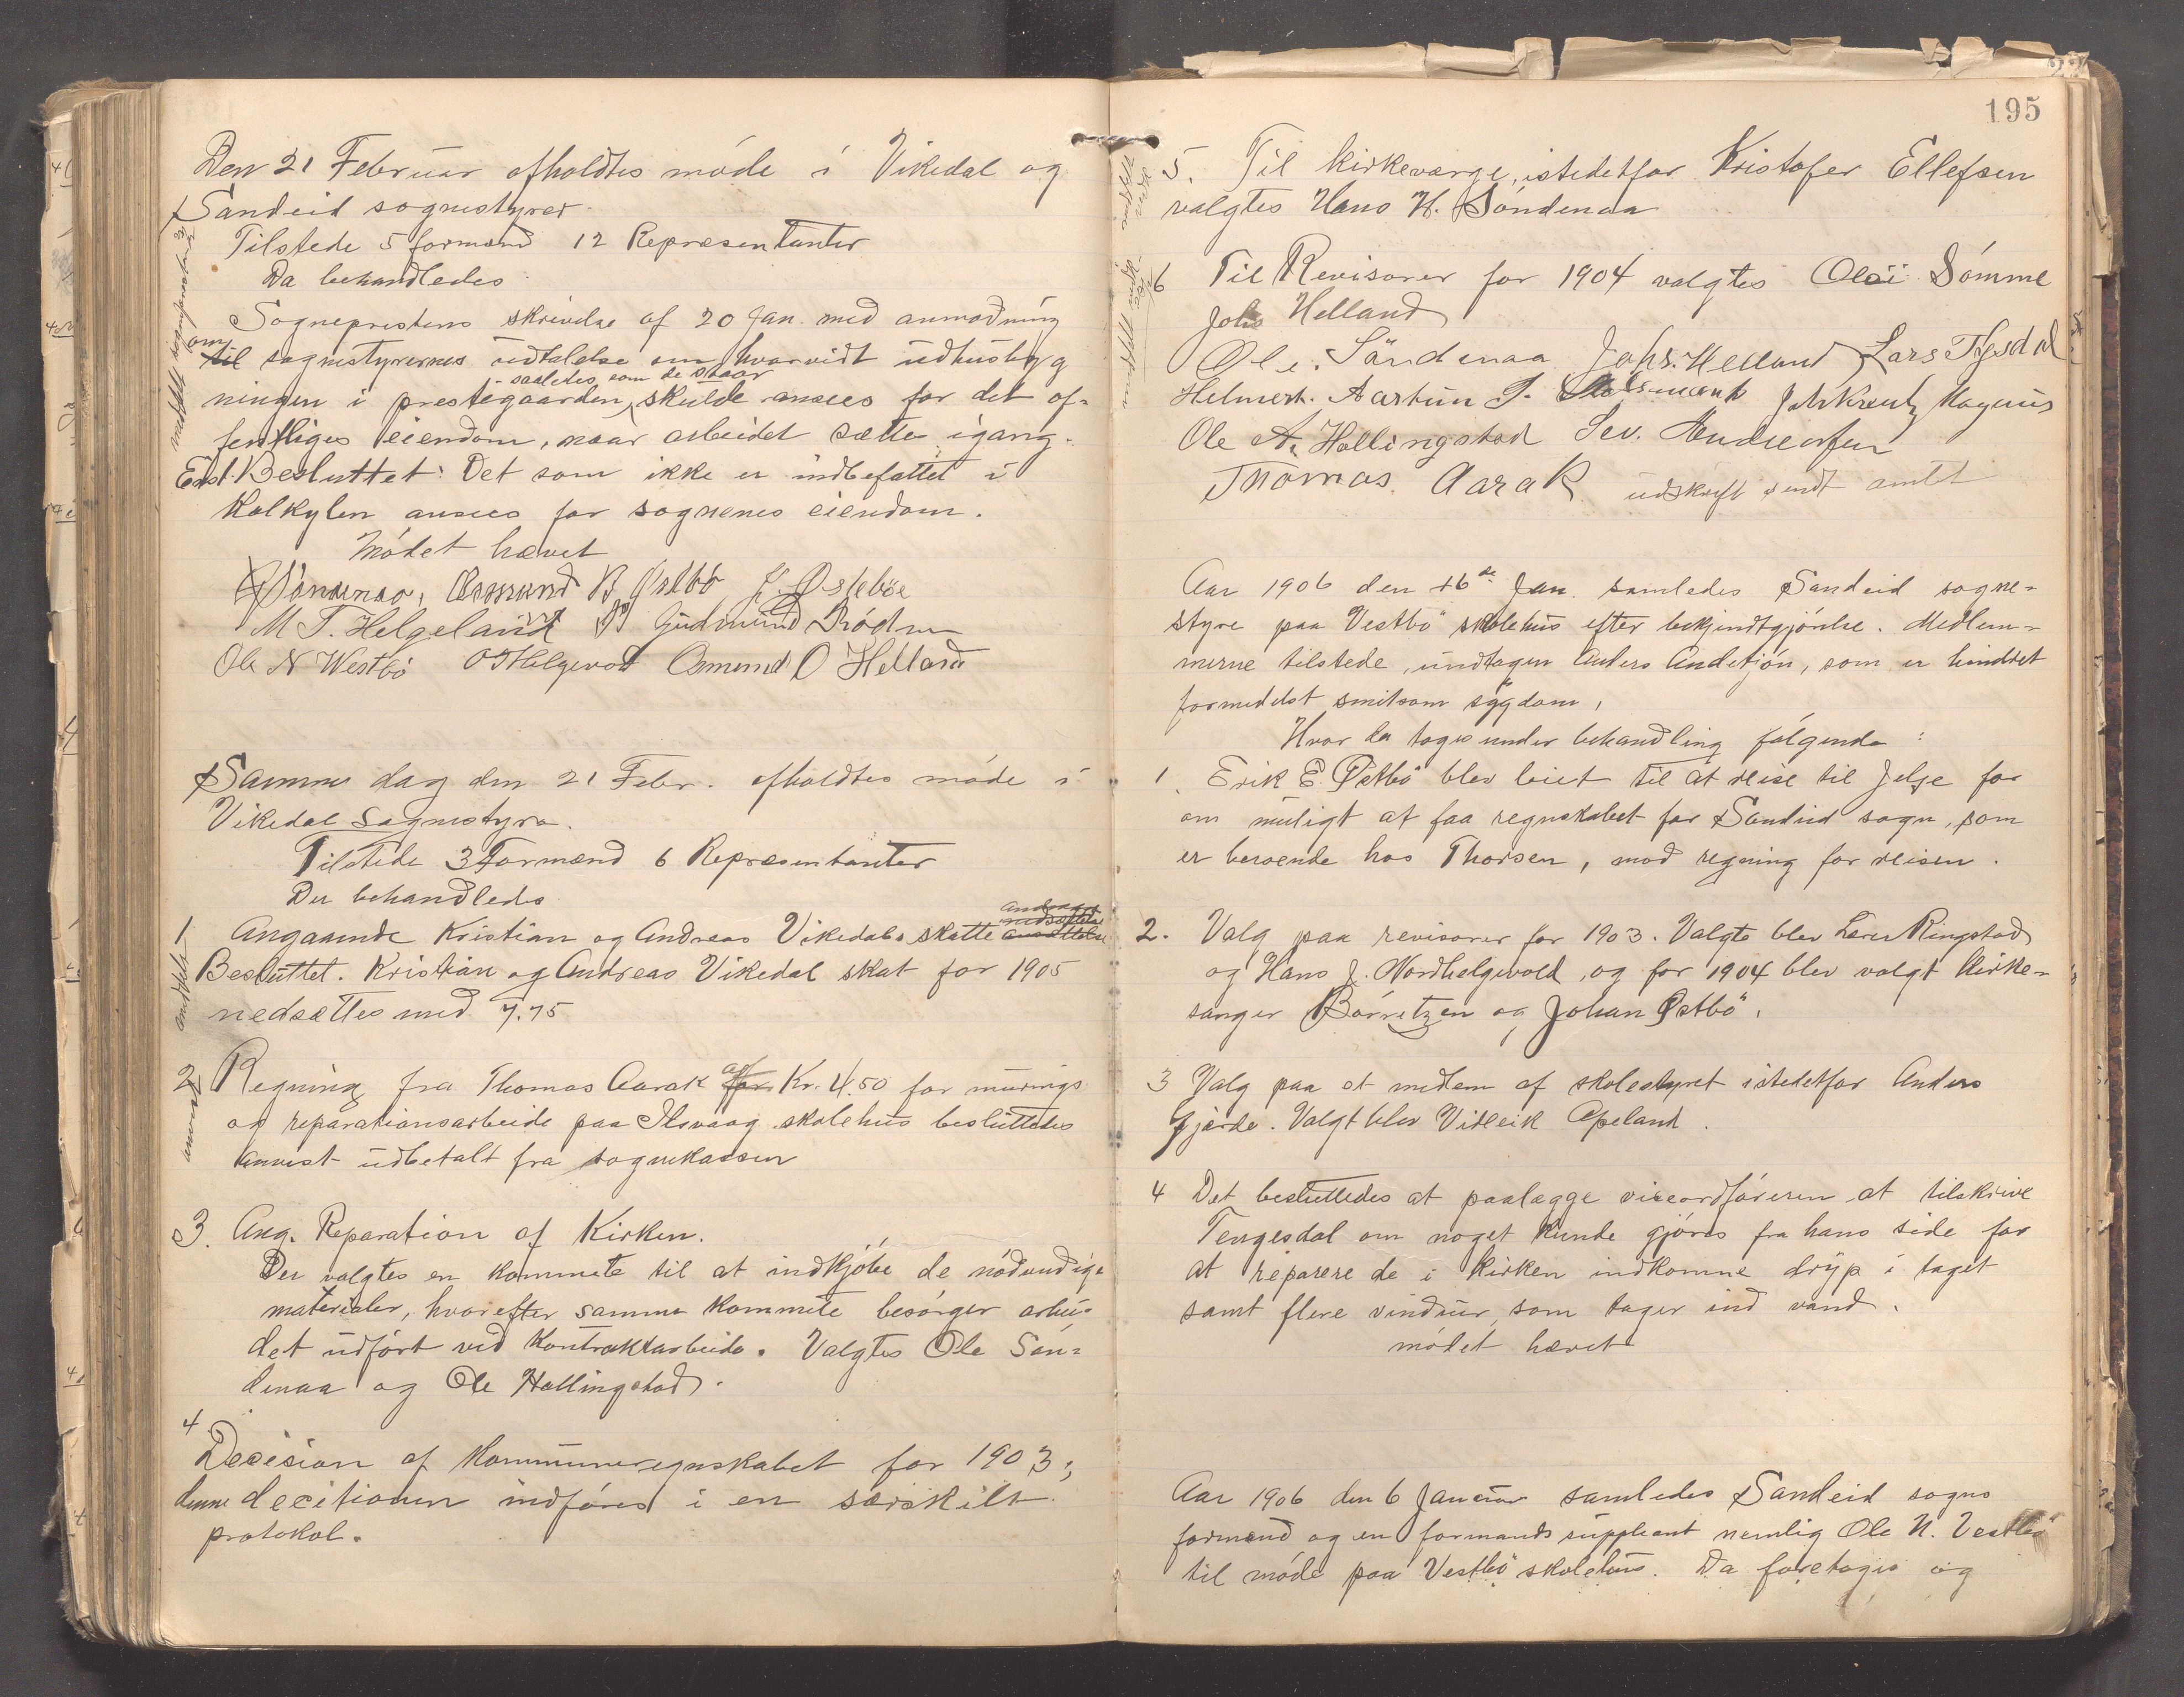 Den 21 Februar afholdtes møde i Vikedal og
Sandeid sognestyrer.
Tilstede 5 formænd 12 Repræsentanter
Da behandledes
Sogneprestens skrivelse af 20 Jan. med anmodning
om til sognestyrernes udtalelse om hvorvidt udhusbyg
saaledes som de staar
ningen i prestegaarden, skulde ansees for det of-
fentliges eiendom, naar arbeidet sættes igang.
Enst. Besluttet: Det som ikke er indbefattet i
Kalkylen ansees for sognenes eiendom.
Mødet hævet
Osmund B Østbö L. Østebøe
M T. Helgeland Gudmund Rødne
Ole N Westbö O Helgevold Osmund O Helland
Samme dag den 21 Febr. afholdtes møde i
Vikedal Sognestyre.
Tilstede 3 Formænd 6 Repræsentanter
Der behandledes
1 Angaaende Kristian og Andreas Vikedals skatte
Besluttet. Kristian og Andreas Vikedal skat for 1905
nedsættes med 7.75
2 Regning fra Thomas Aarak for af Kr. 4.50 for murings
og reparationsarbeide paa Ilsvaag skolehus besluttedes
anvist udbetalt fra sognekassen
3. Ang. Reparation af Kirken.
Der valgtes en kommite til at indkjøbe de nødvendige
materialer, hvorefter samme kommite besørger arbei-
det udført ved kontraktarbeide. Valgtes Ole Søn-
denaa og Ole Hallingstad.
4
Decision af Kommuneregnskabet for 1903;
denne decitionen indføres i en særskilt
protokol.
195
5. Til kirkeværge, istedetfor Kristofer Ellefsen
valgtes Hans H. Søndenaa
6 Til Revisorer for 1904 valgtes Olai Sømme
Johs Helland
Ole. Søndenaa Johs. Helland Lars Tysdal
Helmert. Aartun Joh Kreutz Magnus
Ole A. Hallingstad Sev. Andreasen
Thomas Aarak udskrift sendt amtet
Aar 1906 den 16de Jan. samledes Sandeid sogne-
styre paa Vestbö skolehus efter bekjendtgjørelse. Medlem-
merne tilstede, undtagen Anders, som er hindret
formedelst smitsom sygdom,
Hvor da toges under behandling følgende:
1. Erik E. Østbö blev leiet til at reise til Jelse for
om muligt at faa regnskabet for Sandeid sogn, som
er beroende hos Thorsen, mod regning for reisen.
2. Valg paa revisorer for 1903. Valgte blev Lærer Ringstad
og Hans J. Nordhelgevold, og for 1904 blev valgt Kirke-
sanger Børretzen og Johan Østbö.
3 Valg paa et medlem af skolestyret istedetfor Anders
Fjærde. Valgt blev Vitleik Apeland.
4 Det besluttedes at paalægge viceordføreren at tilskrive
Tengesdal om noget kunde gjøres fra hans side for
at reparere de i kirken indkomne dryp i taget
samt flere vinduer, som tager ind vand.
mødet hævet
Aar 1906 den 6 Januar samledes Sandeid sogns
formænd og en formands suppleant nemlig Ole N. Vestbö
til møde paa Vestbö skolehus. Da foretoges og